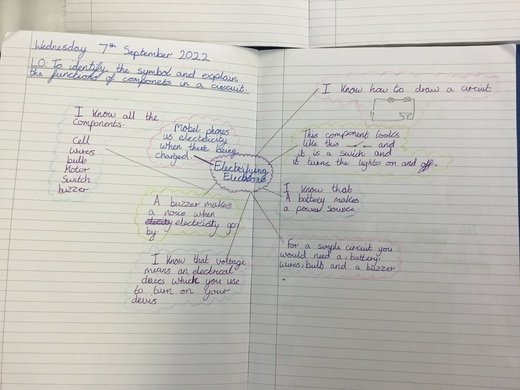 Wednesday 7th September 2022
LO: To identify the symbol and explain
the functions of componets in a circuit.
I know how to draw a circuit
I know all the
Components.
Cell
wires
bulb
Motor
Switch
buzzer
Mobel phones
us electricity
when there being
charged.
Electrifying
Electrons
This component looks
like this
and
it is a switch and
it turns the lights on and off.
A buzzer makes
a noise when
electricity go
by
I know that
A battery makes
a power source
I know that voltage
means an electrical
devies which you use
to turn on your
devies
For a simple circuit you
would need a, battery
wires, bulb and a buzzer